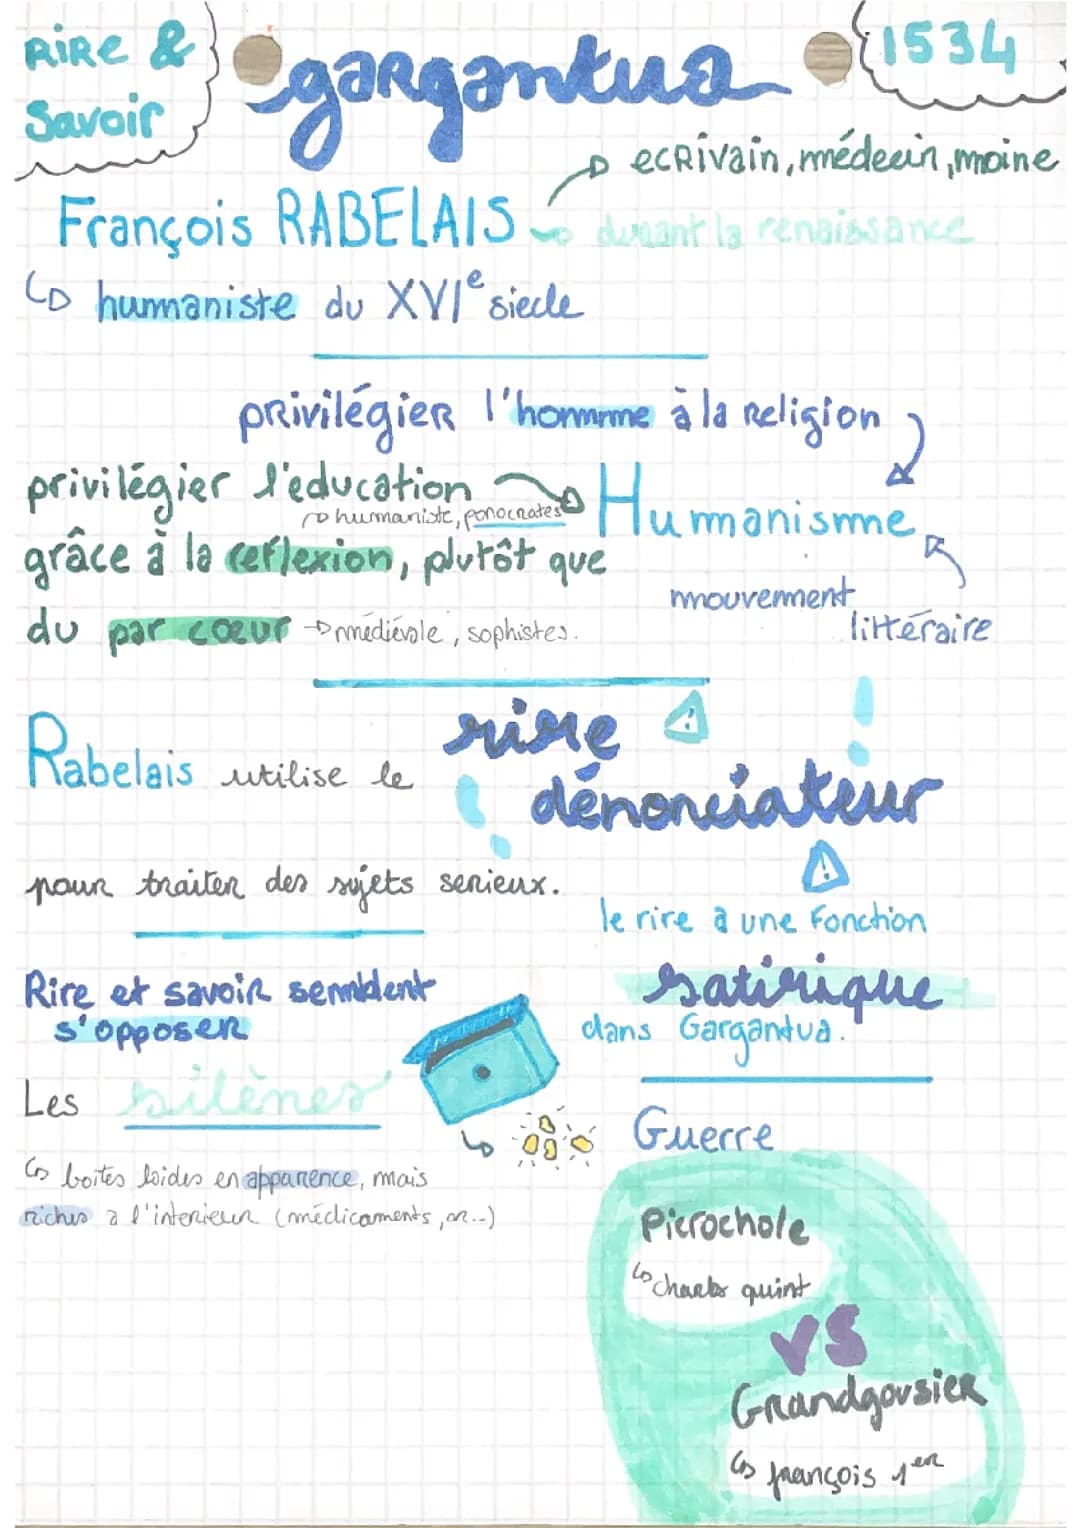 Rire &
Savoir
gargantua
1534
ecrivain, médecin, moine
François RABELAIS
durant la renaissance
humaniste du XVIe siecle
privilégier l'homme à la religion
privilégier l'education
humaniste, ponocrates
Humanisme
grâce à la reflexion, plutôt que
mouvement
littéraire
du par cœur → médiévale, sophistes.
rire
Rabelais utilise le
dénonciateur
pour traiter des sujets serieux.
le rire a une Fonction
satirique
dans Gargantua.
Rire et savoir semblent
s'opposer
Les silènes
boîtes laides en apparence, mais
riches a l'interieur (médicaments, or...)
Guerre
Picrochole
charles quint
VS
Grandgousier
françois 1er